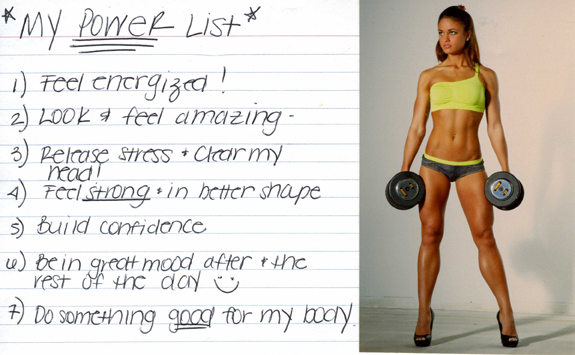 *My POWER List*
1) Feel energized!
2) LOOK & feel amazing -
3) Release stress + Clear my
head!
4) Feel strong + in better shape
5) Build confidence
6) Be in great mood after + the
rest of the day
7) Do something good for my body.